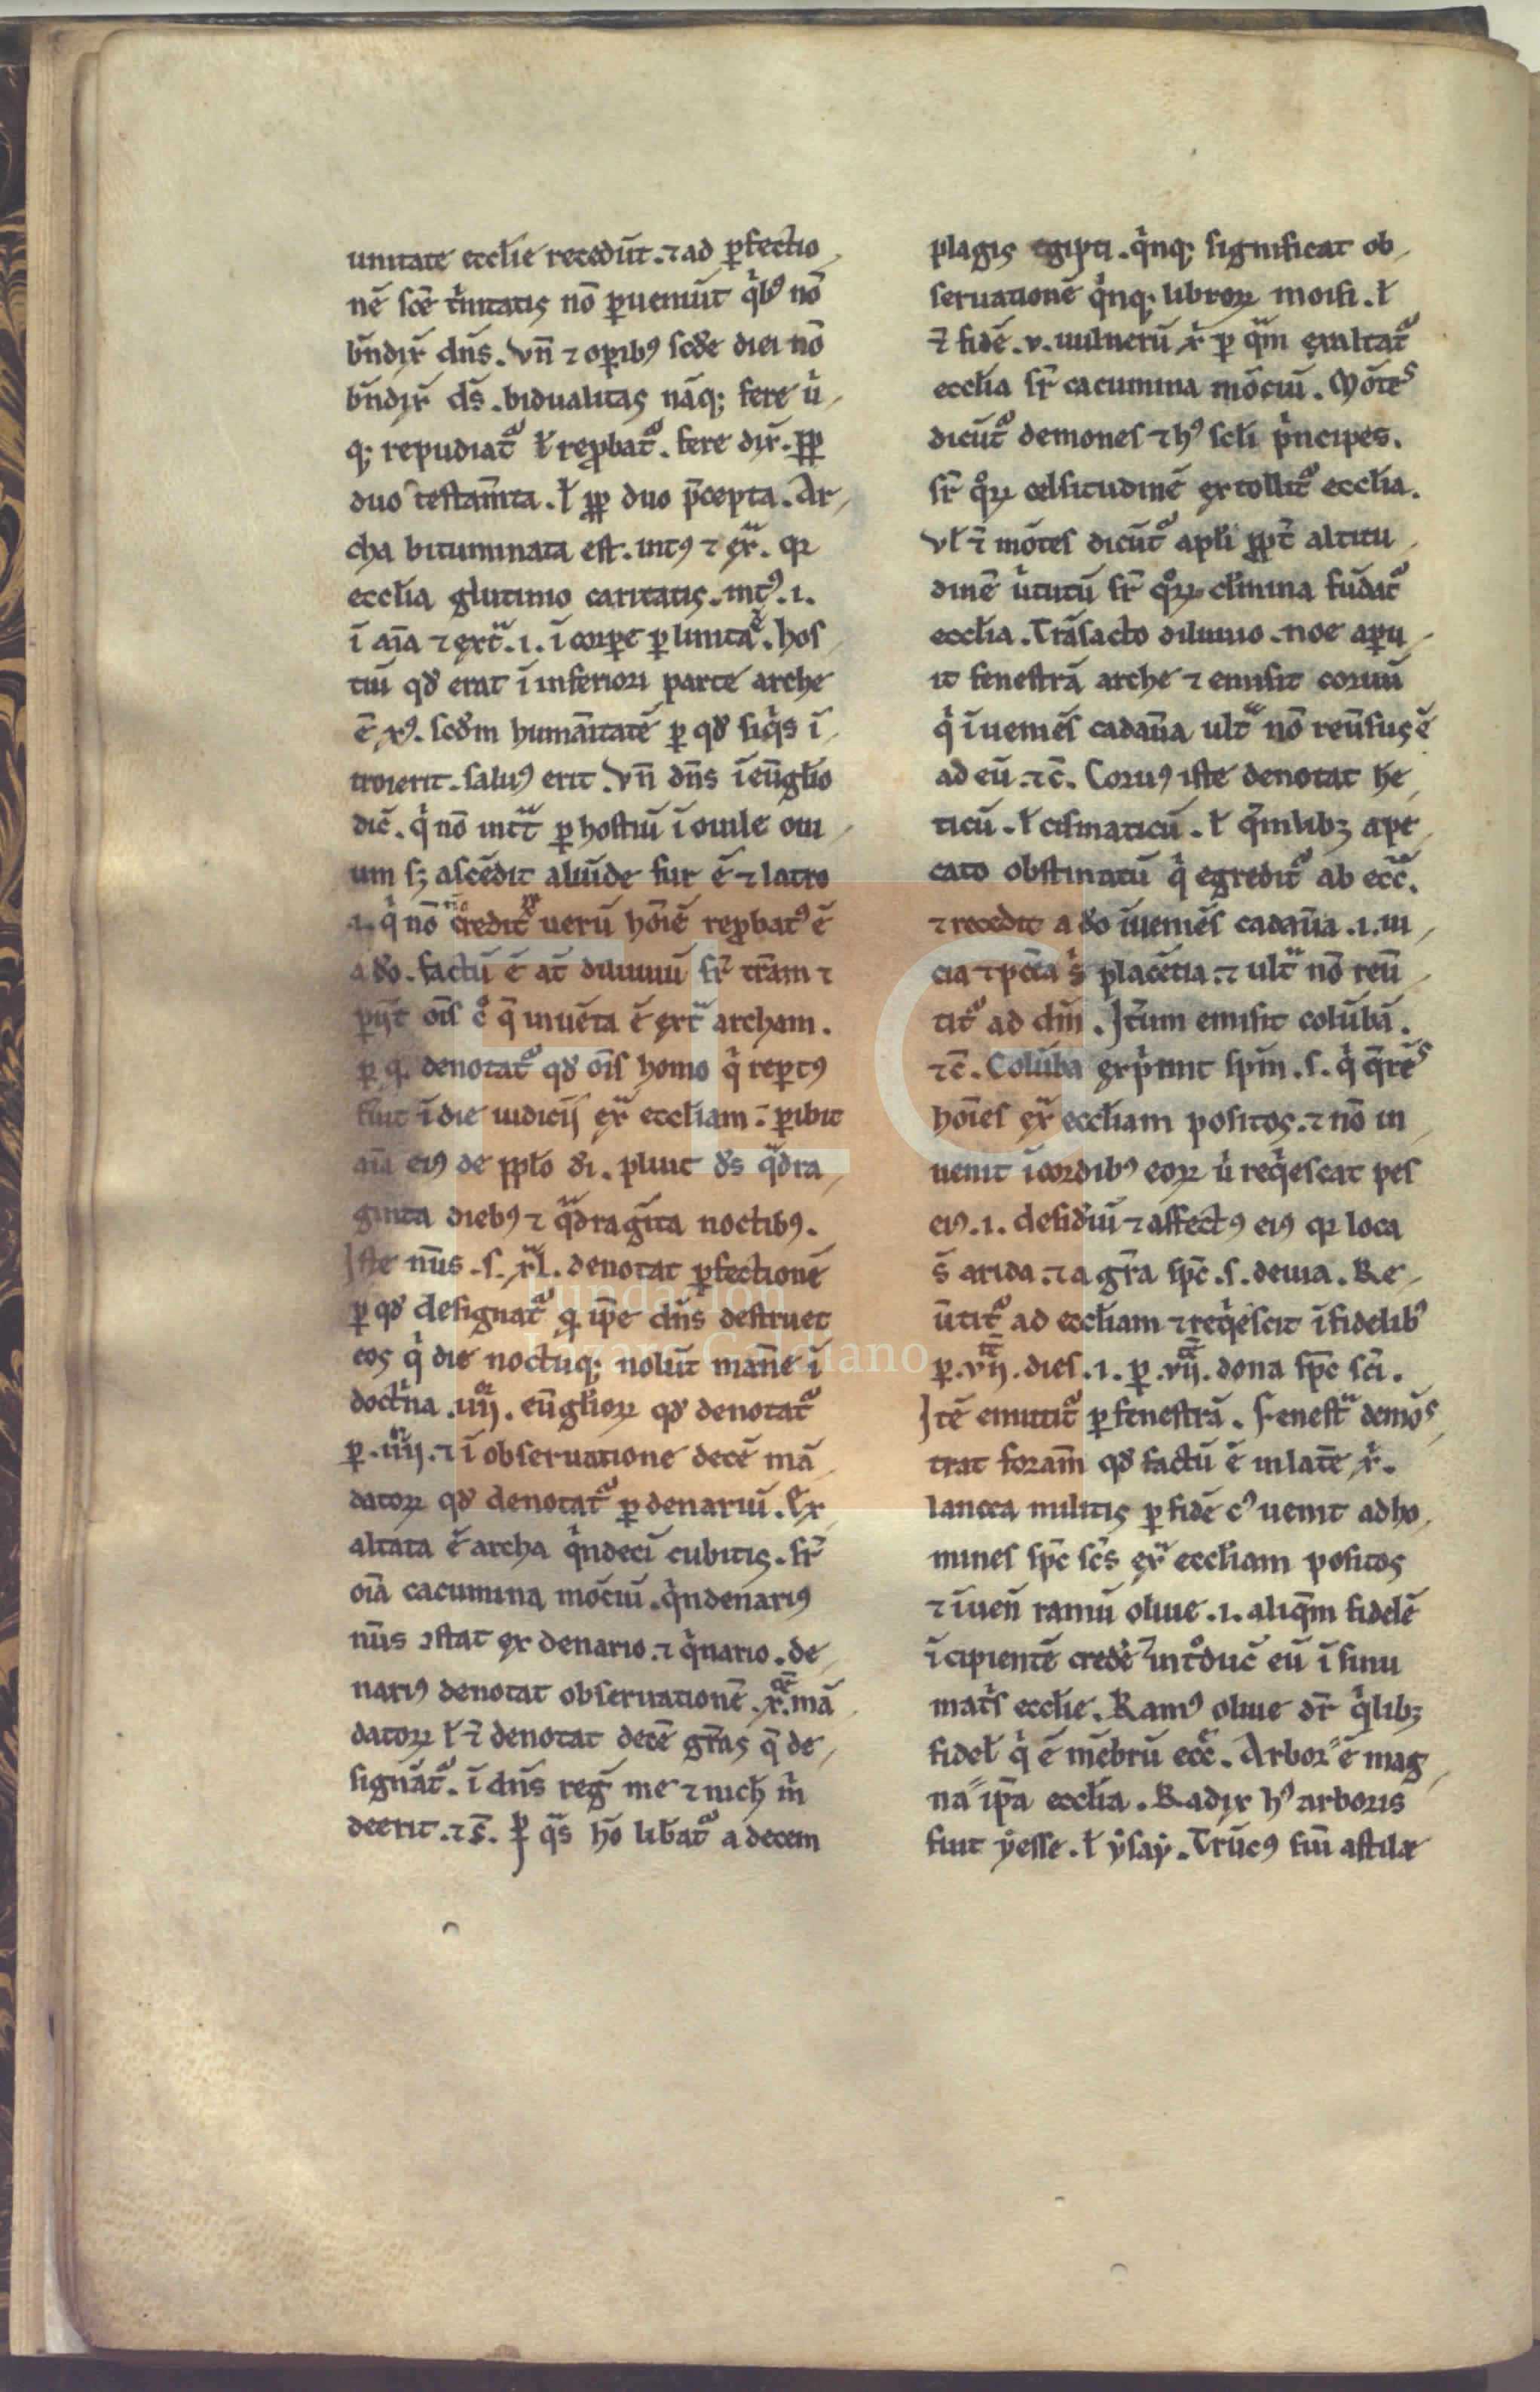 unitate eccłie recedūt. ⁊ ad ꝑfectio
nē scē t̾nitatis nō ꝑueniūt qͥbꝰ nō
bn̄dix̄ dn̄s. vn̄ ⁊ oꝑibꝰ scđe diei nō
bn̄dix̄ ds̄. bidualitas nāqꝫ fere ù
qꝫ repudiat᷑ ł reꝓbat᷑. fere dix̄. ꝓꝑ
duo testam̄ta. ł ꝓꝑ duo p̄cepta. Ar
cha bituminata est. intꝰ ⁊ exͣ. qꝛ
eccłia glutino caritatis. intꝰ. i.
ī aīa ⁊ extͣ. i. ī corꝑe ꝑ linita ē. hos
tiū qđ erat ī inferiori parte arche
ē xꝰ. scđm humānitatē ꝑ qđ siqͥs ī
troierit. saluꝰ erit. vn̄ dn̄s ī eūg̅lio
dic̄. qͥ nō int̾t ꝑ hostiū ī ouile oui
um sꝫ ascēdit aliūde fur ē ⁊ latro
.i. qͥ nō credit᷑ uerū hoīē reꝓbatꝰ ē
a đo. factū ē at̄ diluuiū sr̄ tr̄am ⁊
ꝑijt oīs cͦ q̄ inuēta ē extͣ archam.
ꝑ q̄ denotat᷑ qđ oīs homo qͥ reꝑtꝰ
fuit ī die iudicij exͣ eccłiam. ꝑibit
aīa eiꝰ de pp̄lo di. pluit đs qͣdra
ginta diebꝰ ⁊ qͣdragīta noctibꝰ.
Iste nūs .s. xl. denotat ꝑfectionē
ꝑ qđ designat᷑ qꝛ ip̄e dn̄s destruet
eos qͥ die noctuqꝫ nolūt manē ī
doctͥna .iiij. eūg̅lioꝝ qđ denotat᷑
ꝑ .iiij. ⁊ ī obseruatione decē mā
datoꝝ qđ denotat᷑ ꝑ denariū. Ex
altata ē archa qͥndecī cubitis. sr̄
oīa cacumina mōciū. qͥndenariꝰ
nūs ꝯstat ex denario. ⁊ qͥnario. de
nariꝰ denotat obseruationē .x. mā
datoꝝ ł ⁊̄ denotat decē gr̄as q̄ de
signāt᷑. ī dn̄s reg̅ me ⁊ nich̅ m̄
deerit. ⁊ s̄. ꝑ qͣs hō lib̾at᷑ a decem
plagis egipti. qͥnqꝫ significat ob
seruationē qͥnqꝫ libroꝝ moisi. ł
⁊̄ fidē .v. uulnerū xͥ ꝑ qͣm exaltat᷑
eccłia sr̄ cacumina mōciū. Mōtes
dicūt᷑ demones ⁊ hꝰ scłi pͥncipes.
sr̄ qͦꝝ celsitudinē extollit᷑ eccłia.
vł ⁊̄ mōtes dicūt᷑ apłi ꝓpt̾ altitu
dinē ùtutū sr̄ qͦꝝ cłmina fūdat᷑
eccłia. Trāsacto diluuio. noe aꝑu
it fenestrā arche ⁊ emisit coruū
qͥ īueniēs cadau̾a ultͣ nō reu̾sus ē
ad eū. ⁊c̄. Coruꝰ iste denotat he
ticū. ł cismaticū. ł qͣmlibꝫ a pec
cato obstinatū qͥ egredit᷑ ab ecc̄.
⁊ recedit a đo īueniēs cadau̾a .i. ui
cia ⁊ pc̄ca s̾ placētia. ⁊ ultͣ nō reū
tit᷑ ad dm̄. Itͤum emisit colūbā.
⁊c̄. Colūba expͥmit spm̄ .s. qͥ q̄rēs
hoīes exͣ eccłiam positos. ⁊ nō in
uenit ī cordibꝰ eoꝝ ù reqͥescat pes
eiꝰ .i. desideriū ⁊ affectꝰ eiꝰ qꝛ loca
s̄ arida. ⁊ a gr̄a spc̄ .s. deuia. Re
ūtit᷑ ad eccłiam ⁊ reqͥescit ī fidelibꝰ
ꝑ .vij. dies .i. ꝑ .vij. dona spc̄ sc̄i.
Itē emittit᷑ ꝑ fenestrā. Fenestͣ demōs
trat foram̄ qđ factū ē in lat̄e xͥ.
lancea militis ꝑ fidē cꝰ uenit ad ho
mines spc̄ sc̄s exͣ eccłiam positos
⁊ īuen̄ ramū oliue .i. aliqͣm fidelē
īcipientē crede᷑ int͛duc̄ eū ī sinu
matͥs eccłie. Ramꝰ oliue dr̄ qͥlibꝫ
fideł qͥ ē mēbrū ecc̄. Arbor ē mag
na ip̄a eccłia. Radix hꝰ arboris
fuit yesse. ł ysay. Trūcꝰ siū astilae